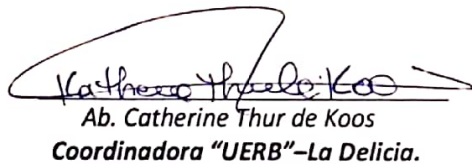 Katherine Thur de Koos
Ab. Catherine Thur de Koos
Coordinadora "UERB"–La Delicia.